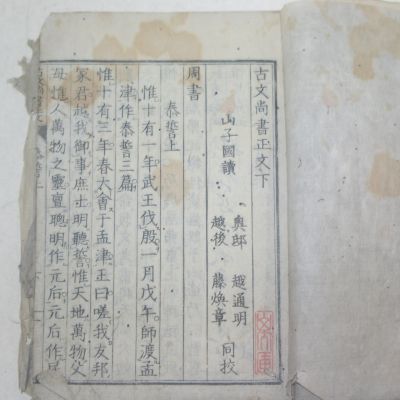 古文尚書正文下
山子國讀
奧邸 越通明
越後 藤煥章 同校
周書
泰誓上
惟十有一年武王伐殷一月戊午師渡孟
津作泰誓三篇
惟十有三年春大會于孟津王曰嗟我友邦
冢君越我御事庶士明聽誓惟天地萬物父
母惟人萬物之靈亶聰明作元后元后作民